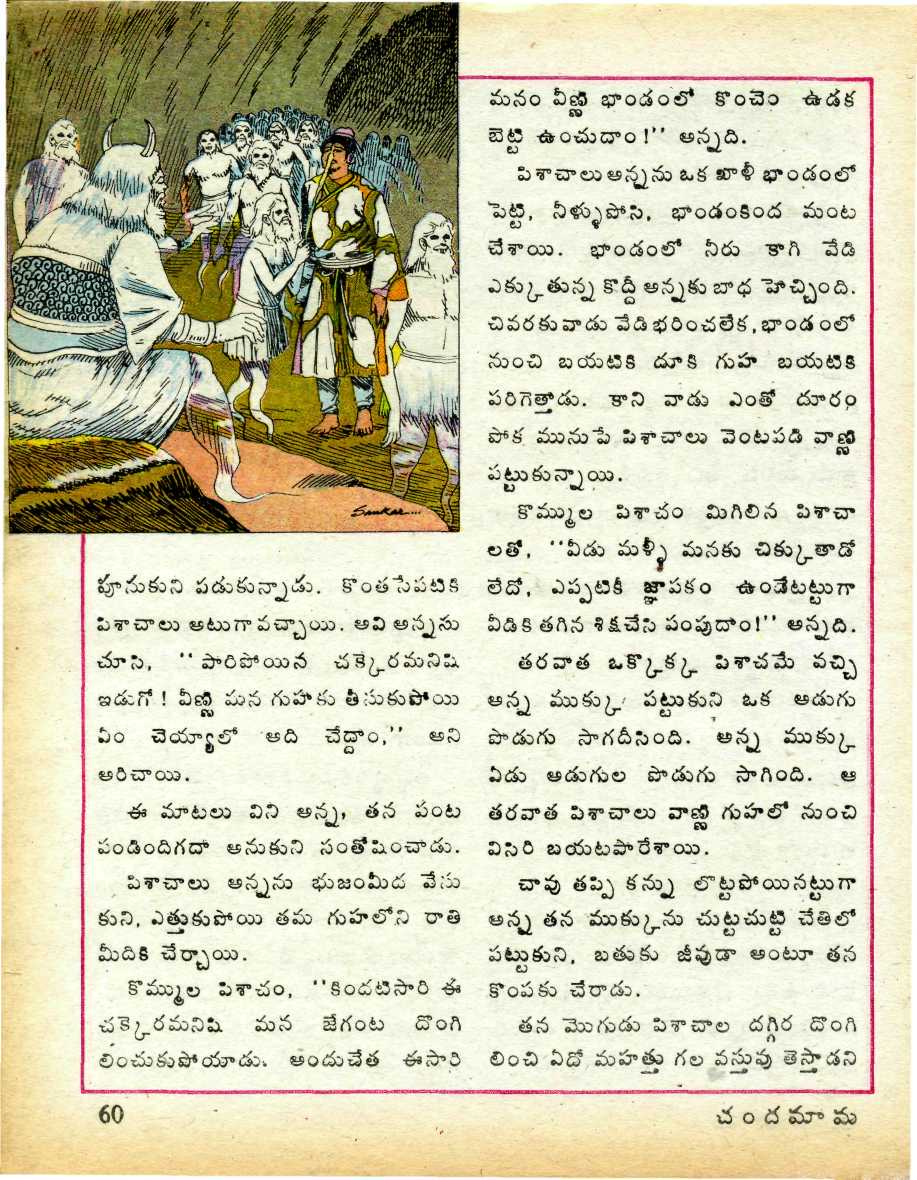 Sankar....
పూనుకుని పడుకున్నాడు. కొంతసేపటికి
పిశాచాలు అటుగా వచ్చాయి. అవి అన్నను
చూసి, ‘‘పారిపోయిన చక్కెరమనిషి
ఇడుగో! వీణ్ణి మన గుహకు తీసుకుపోయి
ఏం చెయ్యాలో అది చేద్దాం,’’ అని
అరిచాయి.
ఈ మాటలు విని అన్న, తన పంట
పండిందిగదా అనుకుని సంతోషించాడు.
పిశాచాలు అన్నను భుజంమీద వేసు
కుని, ఎత్తుకుపోయి తమ గుహలోని రాతి
మీదికి చేర్చాయి.
కొమ్ముల పిశాచం, ‘‘కిందటిసారి ఈ
చక్కెరమనిషి మన జేగంట దొంగి
లించుకుపోయాడు. అందుచేత ఈసారి
మనం వీణ్ణి భాండంలో కొంచెం ఉడక
బెట్టి ఉంచుదాం!’’ అన్నది.
పిశాచాలు అన్నను ఒక ఖాళీ భాండంలో
పెట్టి, నీళ్ళుపోసి, భాండంకింద మంట
చేశాయి. భాండంలో నీరు కాగి వేడి
ఎక్కుతున్న కొద్దీ అన్నకు బాధ హెచ్చింది.
చివరకు వాడు వేడి భరించలేక, భాండంలో
నుంచి బయటికి దూకి గుహ బయటికి
పరిగెత్తాడు. కాని వాడు ఎంతో దూరం
పోక మునుపే పిశాచాలు వెంటపడి వాణ్ణి
పట్టుకున్నాయి.
కొమ్ముల పిశాచం మిగిలిన పిశాచా
లతో, ‘‘వీడు మళ్ళీ మనకు చిక్కుతాడో
లేదో, ఎప్పటికీ జ్ఞాపకం ఉండేటట్టుగా
వీడికి తగిన శిక్షచేసి పంపుదాం!’’ అన్నది.
తరవాత ఒక్కొక్క పిశాచమే వచ్చి
అన్న ముక్కు పట్టుకుని ఒక అడుగు
పొడుగు సాగదీసింది. అన్న ముక్కు
ఏడు అడుగుల పొడుగు సాగింది. ఆ
తరవాత పిశాచాలు వాణ్ణి గుహలో నుంచి
విసిరి బయటపారేశాయి.
చావు తప్పి కన్ను లొట్టపోయినట్టుగా
అన్న తన ముక్కును చుట్టచుట్టి చేతిలో
పట్టుకుని, బతుకు జీవుడా అంటూ తన
కొంపకు చేరాడు.
తన మొగుడు పిశాచాల దగ్గిర దొంగి
లించి ఏదో మహత్తు గల వస్తువు తెస్తాడని
60
చందమామ